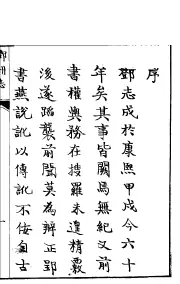 序
鄧志成於康熙甲戌今六十
年矣其事皆闕焉無紀又前
書權輿務在搜羅未遑精覈
後遂蹈襲前聞莫為辨正郢
書燕說訛以傳訛不佞自古